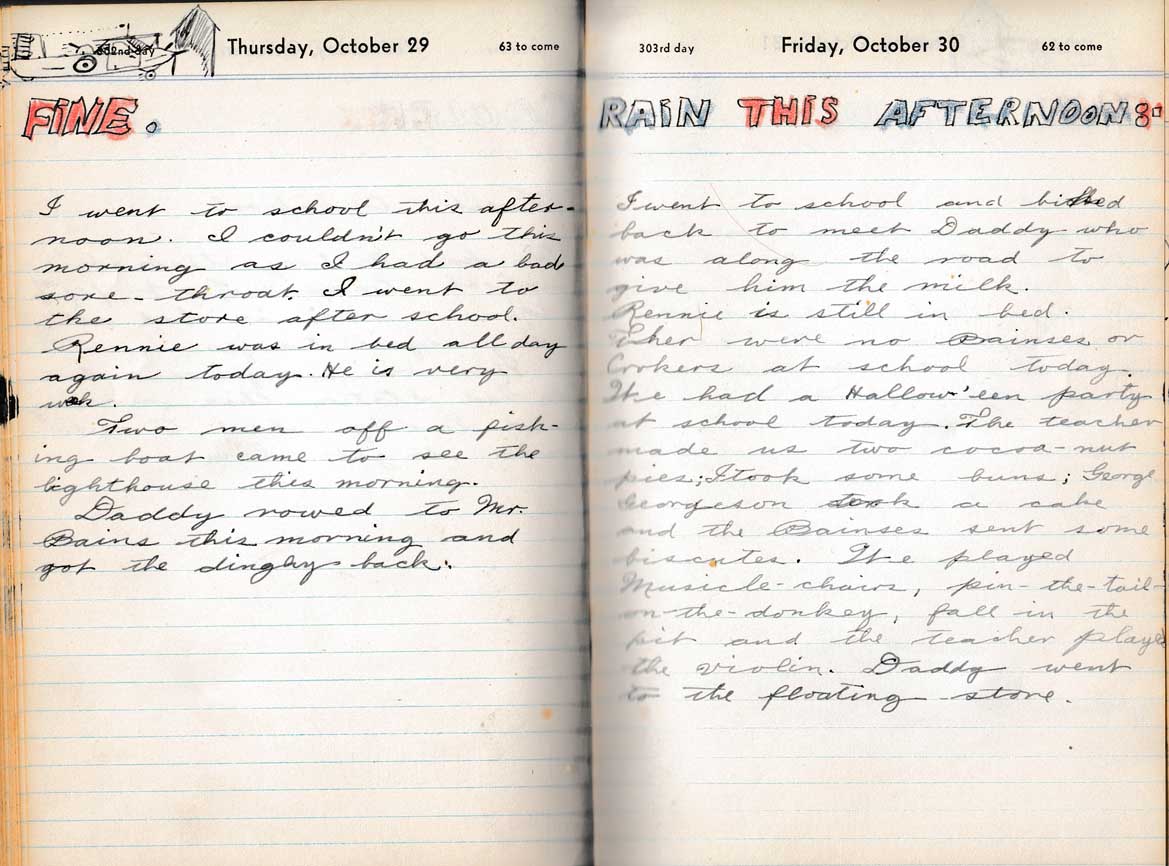 302nd day Thursday, October 29 63 to come
FINE.
I went to school this after-
noon. I couldn't go this
morning as I had a bad
sore-throat. I went to
the store after school.
Rennie was in bed all day
again today. He is very
wek.
Two men off a fish-
ing boat came to see the
lighthouse this morning.
Daddy rowed to Mr.
Bains this morning and
got the dinghy back.
303rd day Friday, October 30 62 to come
RAIN THIS AFTERNOON
I went to school and
back to meet Daddy who
was along the road to
give him the milk.
Rennie is still in bed.
Ther were no Bainses or
Crokers at school today.
We had a Hallow'een party
at school today. The teacher
made us two cocoa-nut
pies; I took some buns; George
Georgeson took a cake
and the Bainses sent some
biscutes. We played
Musicle-chairs, pin-the-tail-
on-the-donkey, fall in the
pit and the teacher played
the violin. Daddy went
to the floating store.